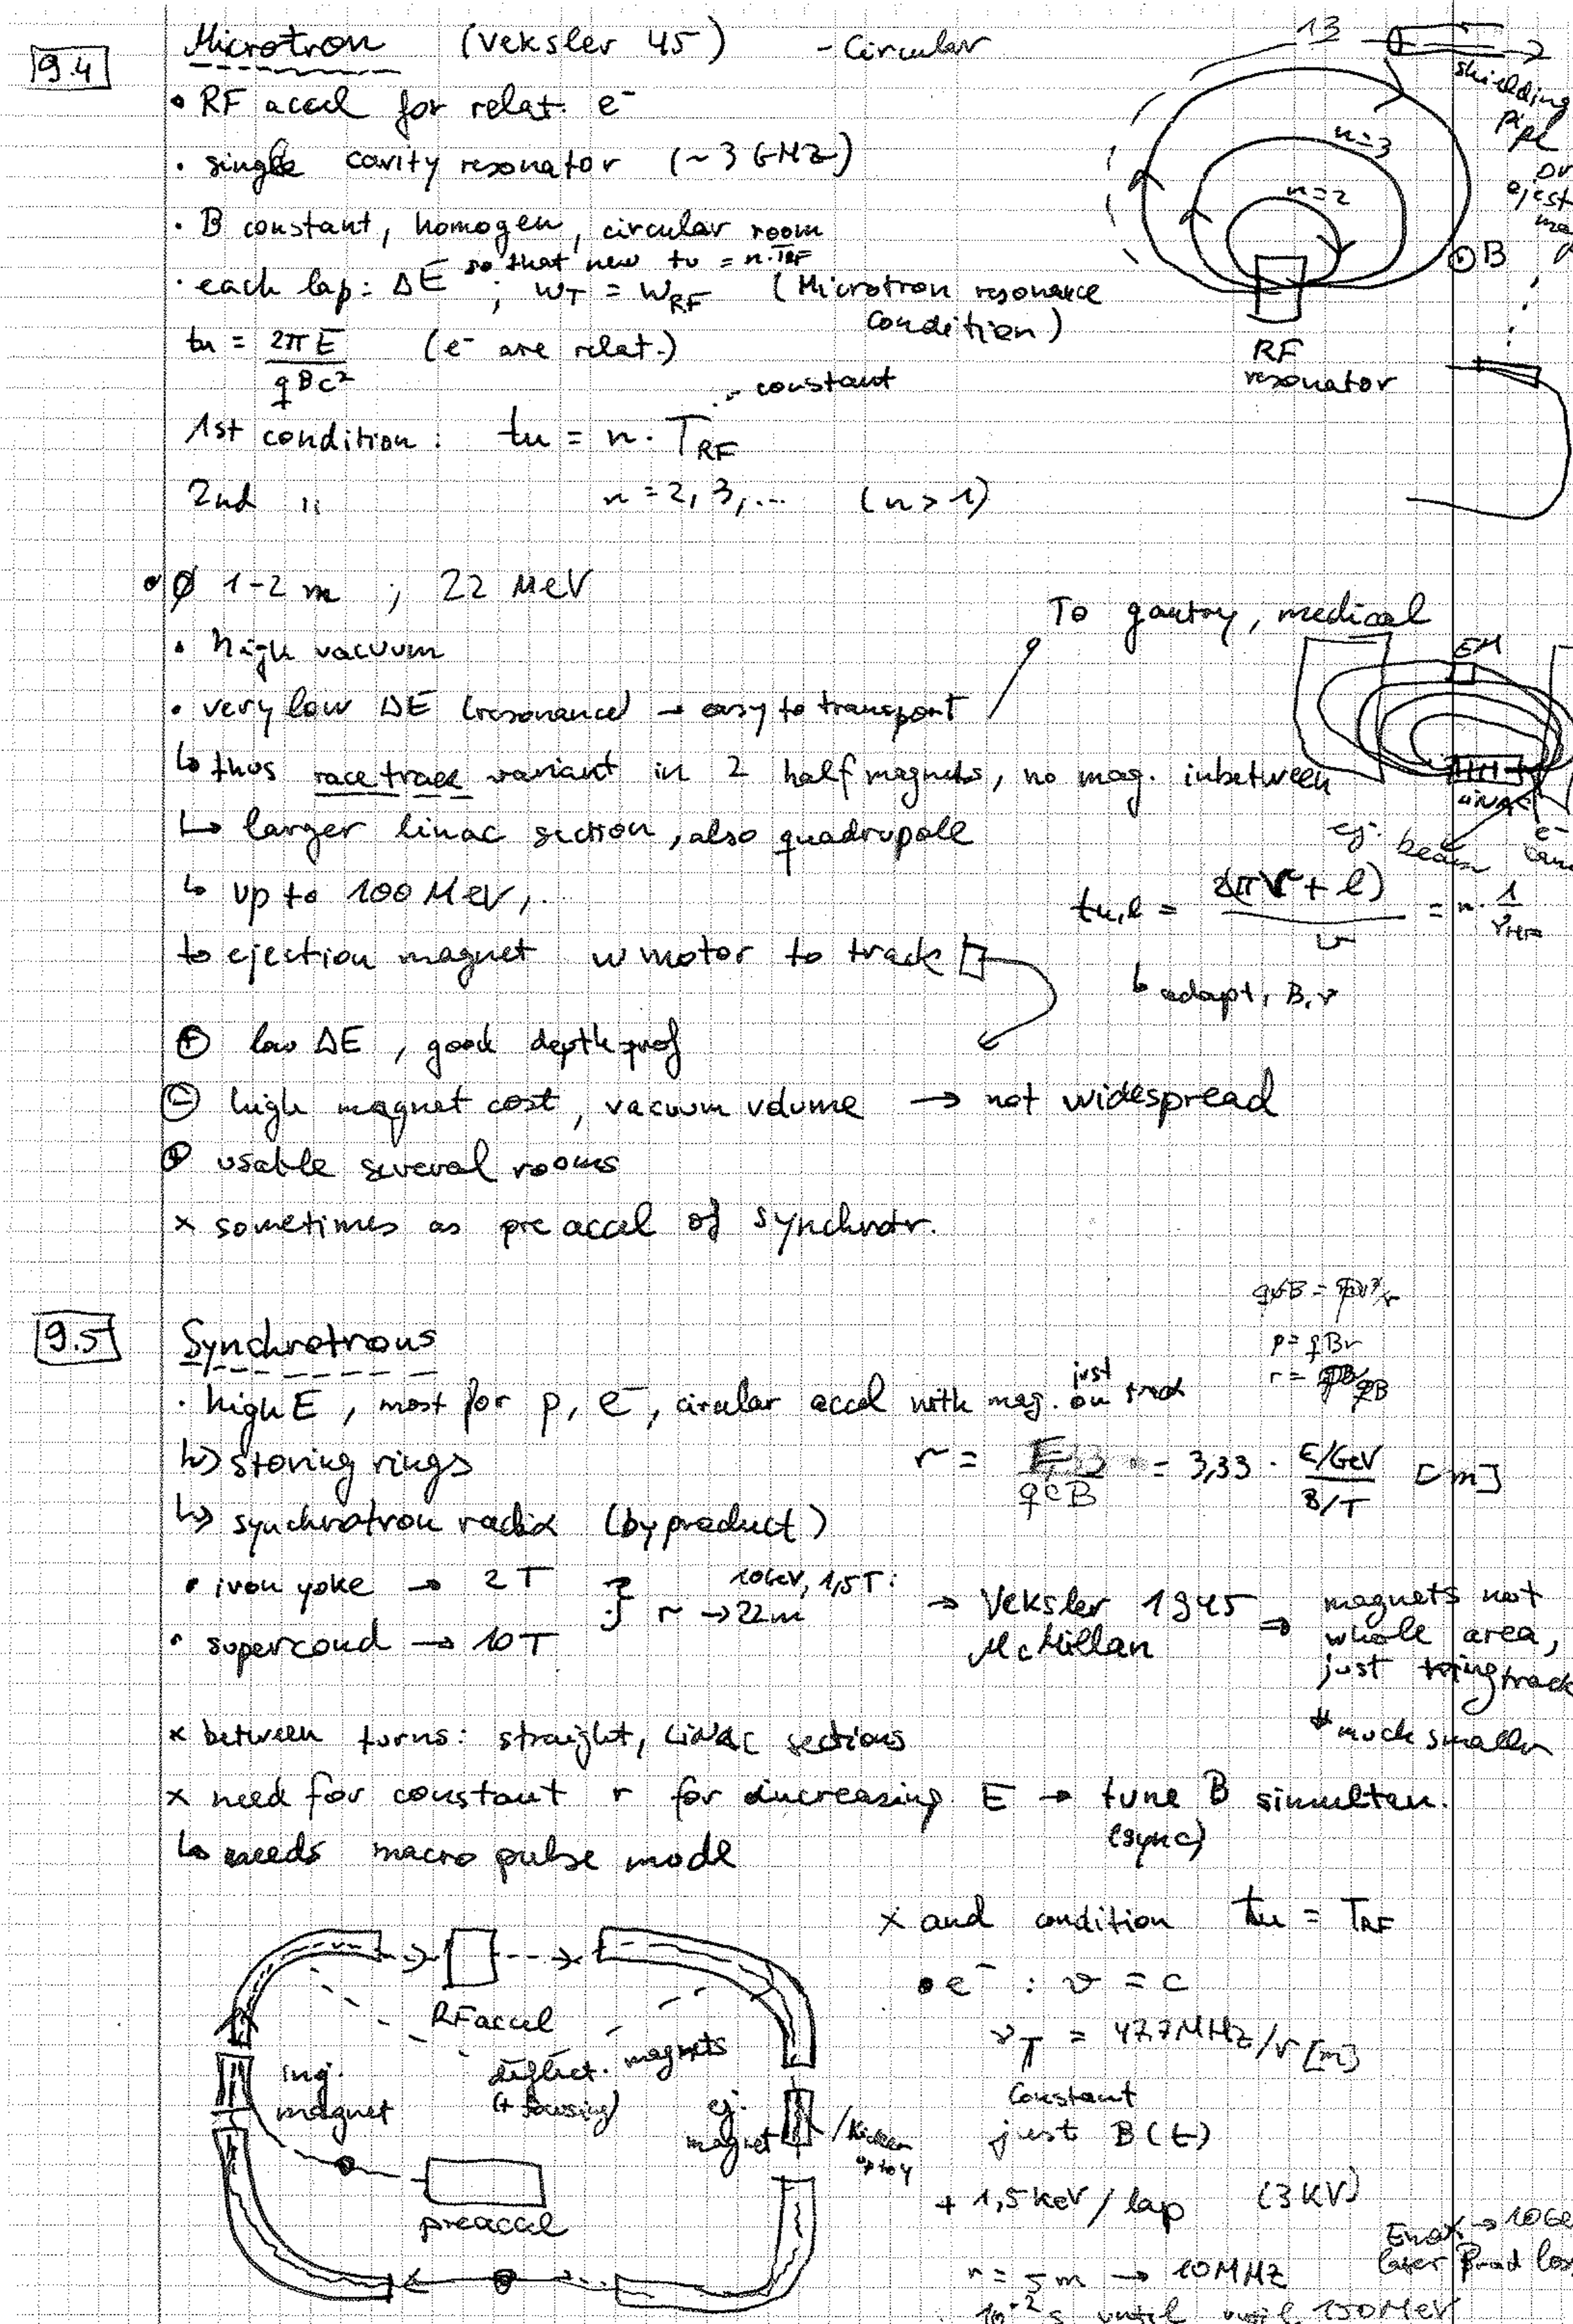 9.4
Microtron (Veksler 45) - Circular
• RF accel for relat. e⁻
• single cavity resonator (~3 GHz)
• B constant, homogen, circular room
so that new tu = n·T_RF
• each lap: ΔE ; ω_T = ω_RF (Microtron resonance
condition)
tu = 2πE / qBc² (e⁻ are relat.)
constant
1st condition: tu = n · T_RF
2nd " n = 2, 3, ... (n > 1)
13
shielding
pipe
or
n=3
n=2
⊙ B
RF
resonator
• Ø 1-2 m ; 22 MeV
• high vacuum
• very low ΔE (resonance) → easy to transport
To gantry, medical
↳ thus race track variant in 2 half magnets, no mag. inbetween
↳ larger linac section, also quadrupole
↳ up to 100 MeV,
to ejection magnet w motor to track
EM
LINAC
ej. beam
e⁻
tu,l = 2(πr + l) / v = n · 1/ν_HF
↳ adapt, B, r
⊕ low ΔE, good depth prof
⊖ high magnet cost, vacuum volume → not widespread
⊕ usable several rooms
x sometimes as pre accel of synchrotr.
9.5
Synchrotrons
p = qBr
just
• high E, most for p, e⁻, circular accel with mag. on track
↳ storing rings
r = E / qcB = 3,33 · E/GeV / B/T [m]
↳ synchrotron radia (by product)
• iron yoke → 2 T
• supercond → 10 T
10GeV, 1,5T:
r → 22m
→ Veksler 1945
McMillan
⇒ magnets not
whole area,
just track
much smaller
x between turns: straight, LINAC sections
x need for constant r for increasing E → tune B simultan.
(sync)
↳ needs macro pulse mode
x and condition tu = T_RF
• e⁻ : v = c
ν_T = 47,7 MHz / r [m]
constant
just B(t)
+ 1,5 keV / lap (3 KV)
r = 5 m → 10 MHz
10⁻² s until 150 MeV
Emax → 10Ge
later
RF accel
deflect. magnets
(+ focusing)
inj.
magnet
ej.
magnet
/ Kicker
preaccel